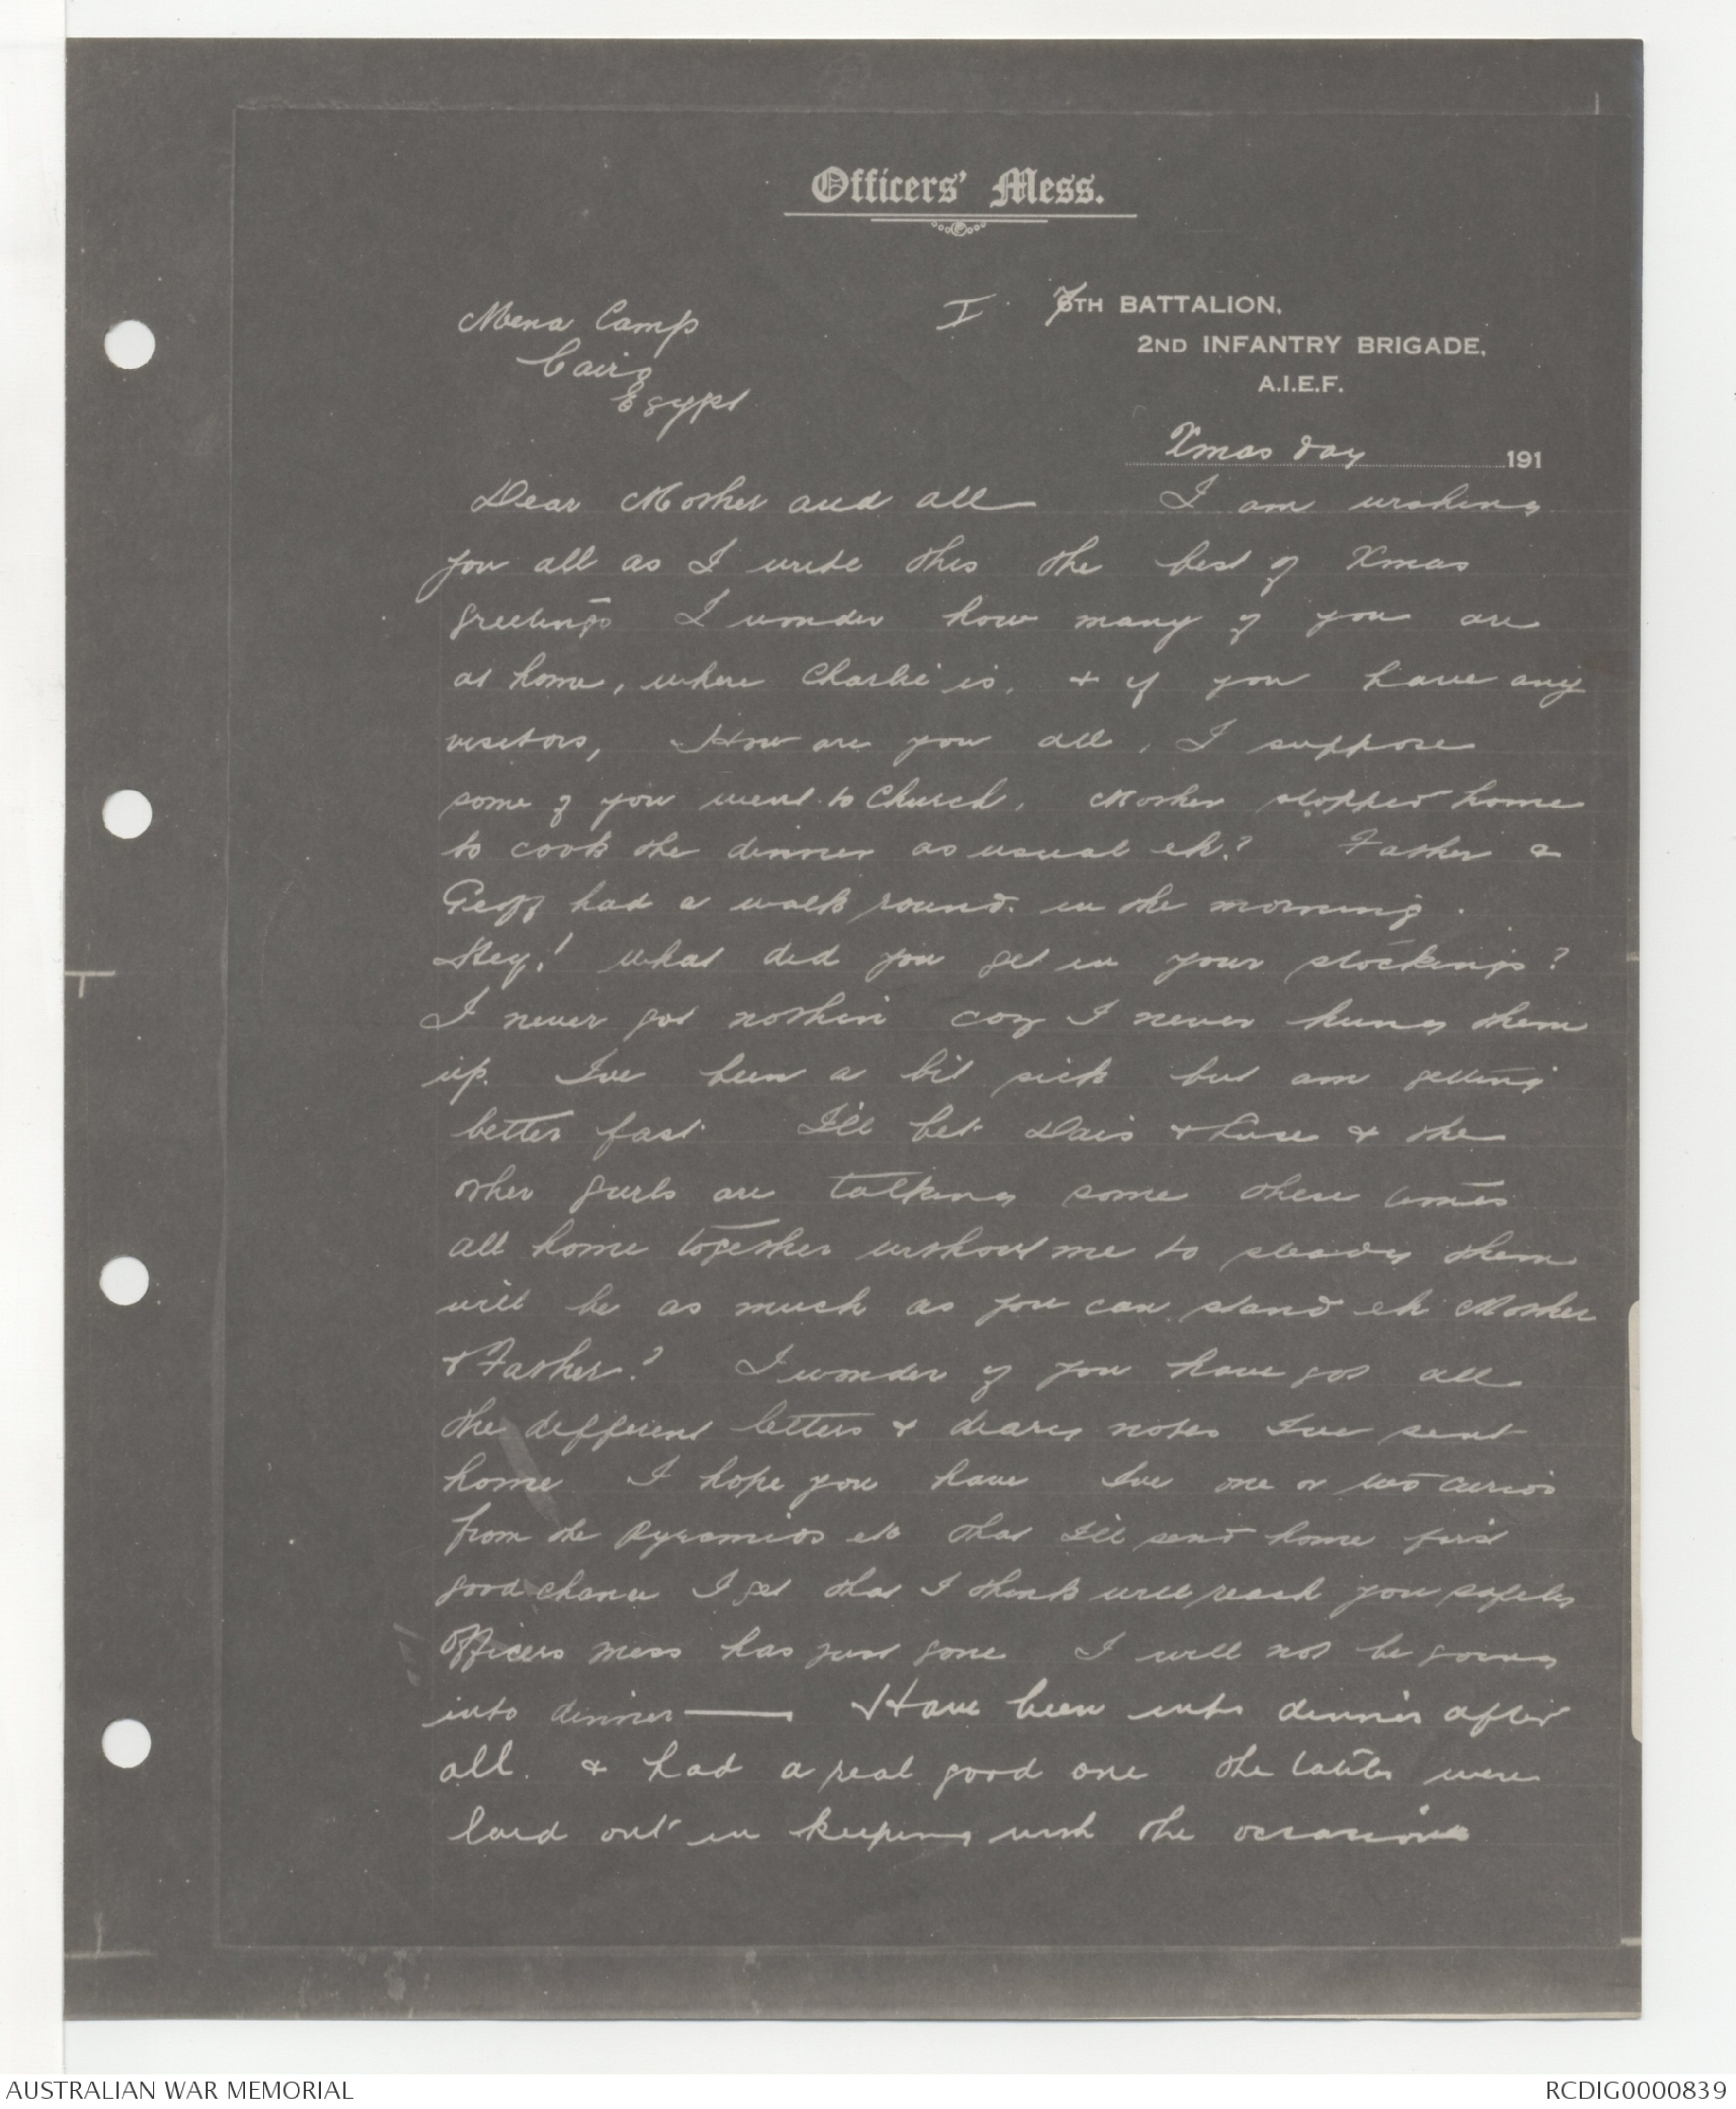 Officers' Mess.
Mena Camp
Cairo
Egypt
I
7TH BATTALION,
2ND INFANTRY BRIGADE,
A.I.E.F.
Xmas day 191
Dear Mother and all I am wishing
you all as I write this the best of Xmas
greetings I wonder how many of you are
at home, where Charlie is, & if you have any
visitors, How are you all, I suppose
some of you went to Church, Mother stopped home
to cook the dinner as usual eh? Father &
Geoff had a walk round in the morning.
Hey! what did you get in your stockings?
I never got nothin coz I never hung them
up. I've been a bit sick but am getting
better fast I'll bet Dais & & the
other girls are talking some these times
all home together without me to steady them
will be as much as you can stand eh Mother
& Father? I wonder if you have got all
the different letters & diary notes I've sent
home I hope you have I've one or two curios
from the Pyramids etc that I'll send home first
good chance I get that I think will reach you safely
Officers mess has just gone I will not be going
into dinner — Have been into dinner after
all. & had a real good one the tables were
laid out in keeping with the occasion
AUSTRALIAN WAR MEMORIAL
RCDIG0000839